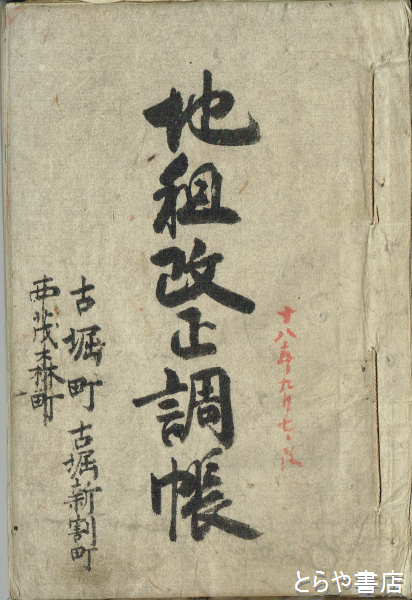 十八年九月七日
地租改正調帳
古堀町 古堀新割町
西茂森町
とらや書店